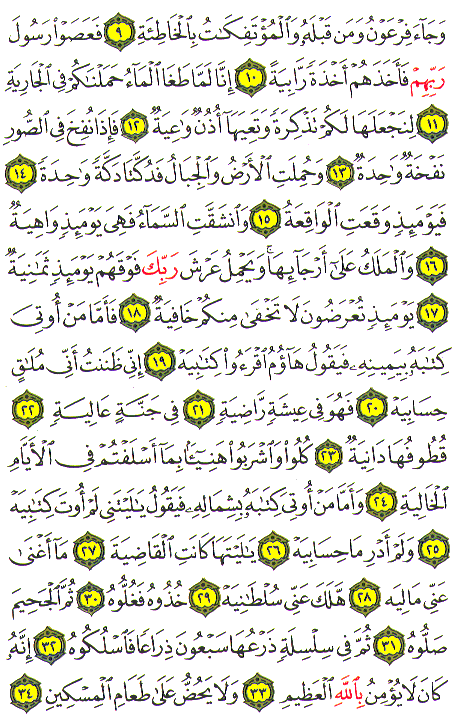 وَجَآءَ فِرْعَوْنُ وَمَن قَبْلَهُۥ وَٱلْمُؤْتَفِكَٰتُ بِٱلْخَاطِئَةِ ٩ فَعَصَوْا۟ رَسُولَ
رَبِّهِمْ فَأَخَذَهُمْ أَخْذَةً رَّابِيَةً ١٠ إِنَّا لَمَّا طَغَا ٱلْمَآءُ حَمَلْنَٰكُمْ فِى ٱلْجَارِيَةِ
١١ لِنَجْعَلَهَا لَكُمْ تَذْكِرَةً وَتَعِيَهَآ أُذُنٌ وَٰعِيَةٌ ١٢ فَإِذَا نُفِخَ فِى ٱلصُّورِ
نَفْخَةٌ وَٰحِدَةٌ ١٣ وَحُمِلَتِ ٱلْأَرْضُ وَٱلْجِبَالُ فَدُكَّتَا دَكَّةً وَٰحِدَةً ١٤
فَيَوْمَئِذٍ وَقَعَتِ ٱلْوَاقِعَةُ ١٥ وَٱنشَقَّتِ ٱلسَّمَآءُ فَهِىَ يَوْمَئِذٍ وَاهِيَةٌ
١٦ وَٱلْمَلَكُ عَلَىٰٓ أَرْجَآئِهَا ۚ وَيَحْمِلُ عَرْشَ رَبِّكَ فَوْقَهُمْ يَوْمَئِذٍ ثَمَٰنِيَةٌ
١٧ يَوْمَئِذٍ تُعْرَضُونَ لَا تَخْفَىٰ مِنكُمْ خَافِيَةٌ ١٨ فَأَمَّا مَنْ أُوتِىَ
كِتَٰبَهُۥ بِيَمِينِهِۦ فَيَقُولُ هَآؤُمُ ٱقْرَءُوا۟ كِتَٰبِيَهْ ١٩ إِنِّى ظَنَنتُ أَنِّى مُلَٰقٍ
حِسَابِيَهْ ٢٠ فَهُوَ فِى عِيشَةٍ رَّاضِيَةٍ ٢١ فِى جَنَّةٍ عَالِيَةٍ ٢٢
قُطُوفُهَا دَانِيَةٌ ٢٣ كُلُوا۟ وَٱشْرَبُوا۟ هَنِيٓـًٔۢا بِمَآ أَسْلَفْتُمْ فِى ٱلْأَيَّامِ
ٱلْخَالِيَةِ ٢٤ وَأَمَّا مَنْ أُوتِىَ كِتَٰبَهُۥ بِشِمَالِهِۦ فَيَقُولُ يَٰلَيْتَنِى لَمْ أُوتَ كِتَٰبِيَهْ
٢٥ وَلَمْ أَدْرِ مَا حِسَابِيَهْ ٢٦ يَٰلَيْتَهَا كَانَتِ ٱلْقَاضِيَةَ ٢٧ مَآ أَغْنَىٰ
عَنِّى مَالِيَهْ ٢٨ هَلَكَ عَنِّى سُلْطَٰنِيَهْ ٢٩ خُذُوهُ فَغُلُّوهُ ٣٠ ثُمَّ ٱلْجَحِيمَ
صَلُّوهُ ٣١ ثُمَّ فِى سِلْسِلَةٍ ذَرْعُهَا سَبْعُونَ ذِرَاعًا فَٱسْلُكُوهُ ٣٢ إِنَّهُۥ
كَانَ لَا يُؤْمِنُ بِٱللَّهِ ٱلْعَظِيمِ ٣٣ وَلَا يَحُضُّ عَلَىٰ طَعَامِ ٱلْمِسْكِينِ ٣٤